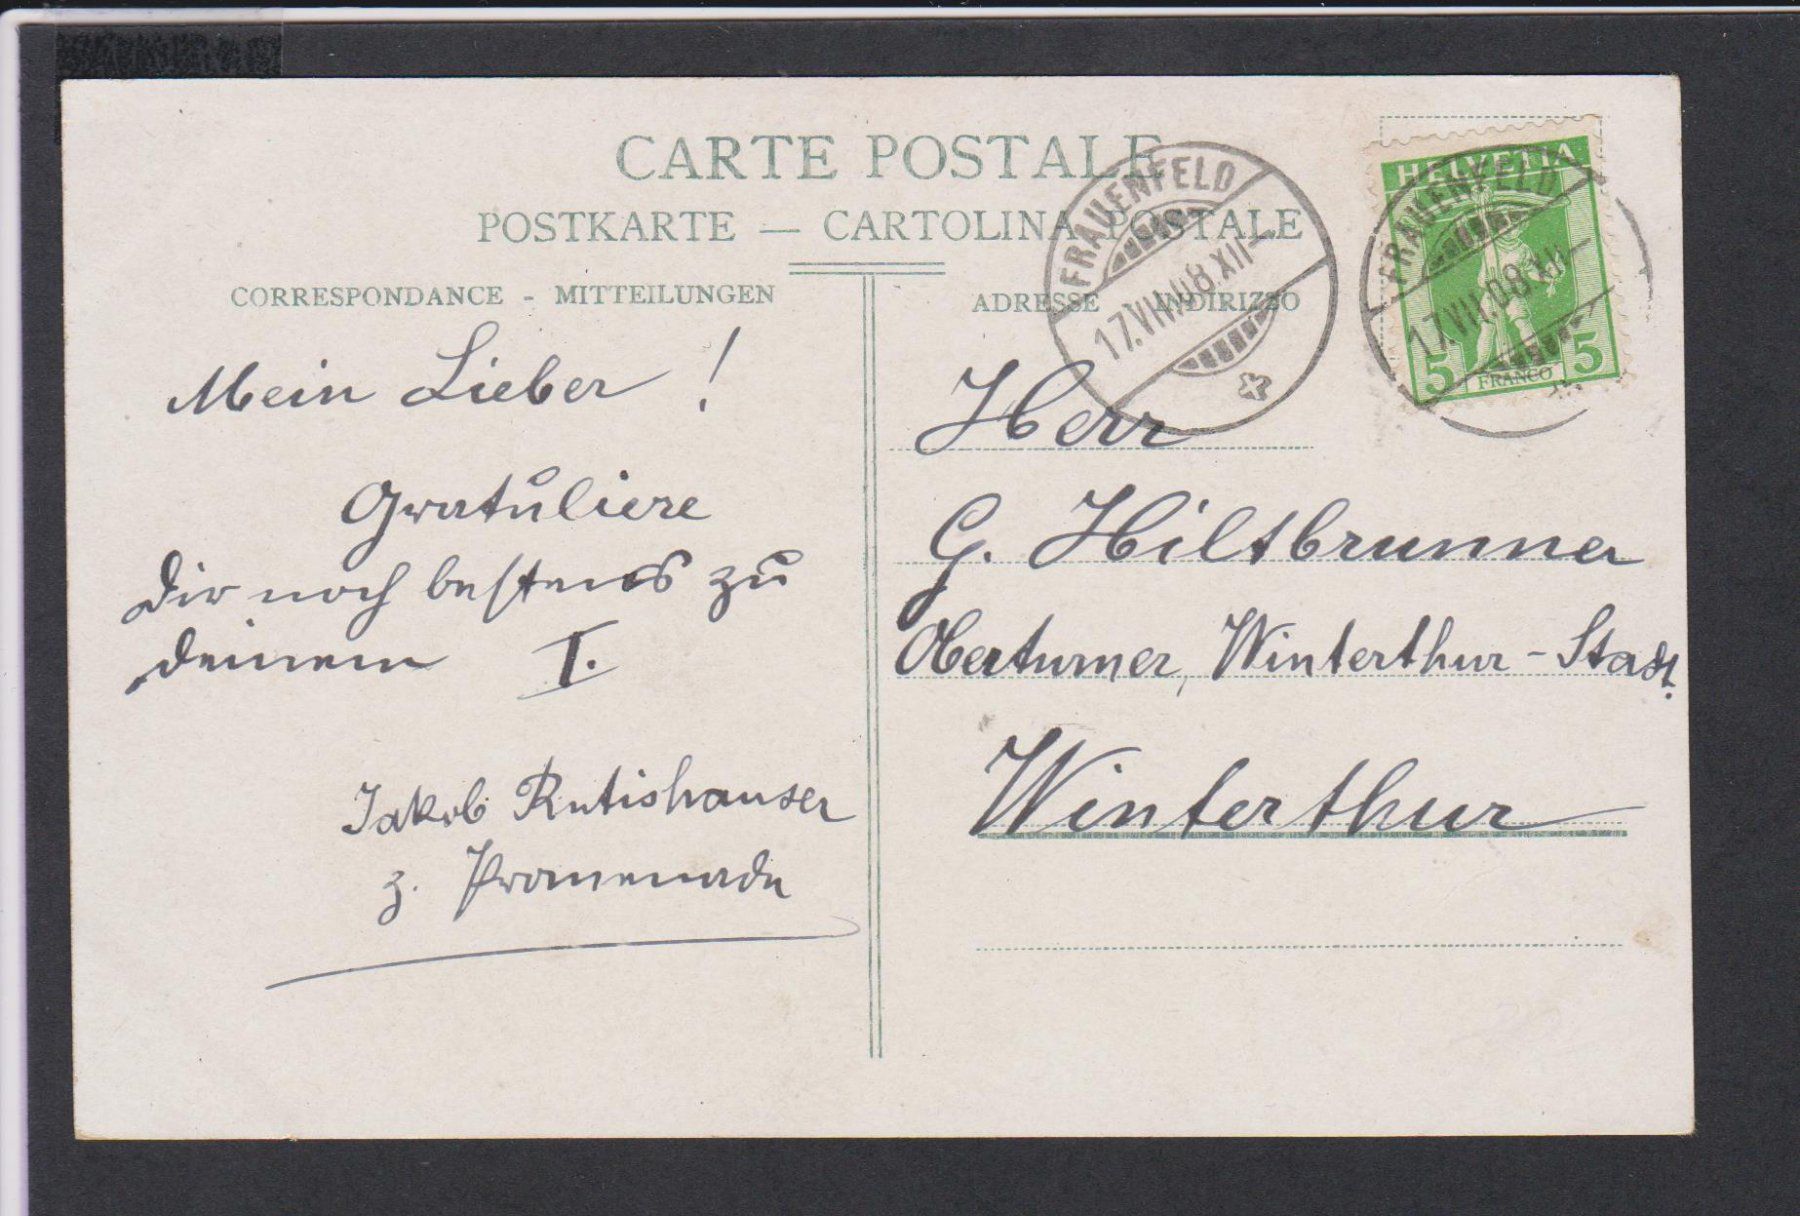 CARTE POSTALE
POSTKARTE — CARTOLINA POSTALE
CORRESPONDANCE - MITTEILUNGEN
Mein Lieber !
Gratuliere
Dir noch bestens zu
deinem I.
Jakob Rutishauser
z. Promenade
ADRESSE INDIRIZZO
Herr
G. Hiltbrunner
Oberturner, Winterthur-Stadt.
Winterthur
FRAUENFELD
17.VII.08.XII-
HELVETIA
5 FRANCO 5
FRAUENFELD
17.VII.08.XII-